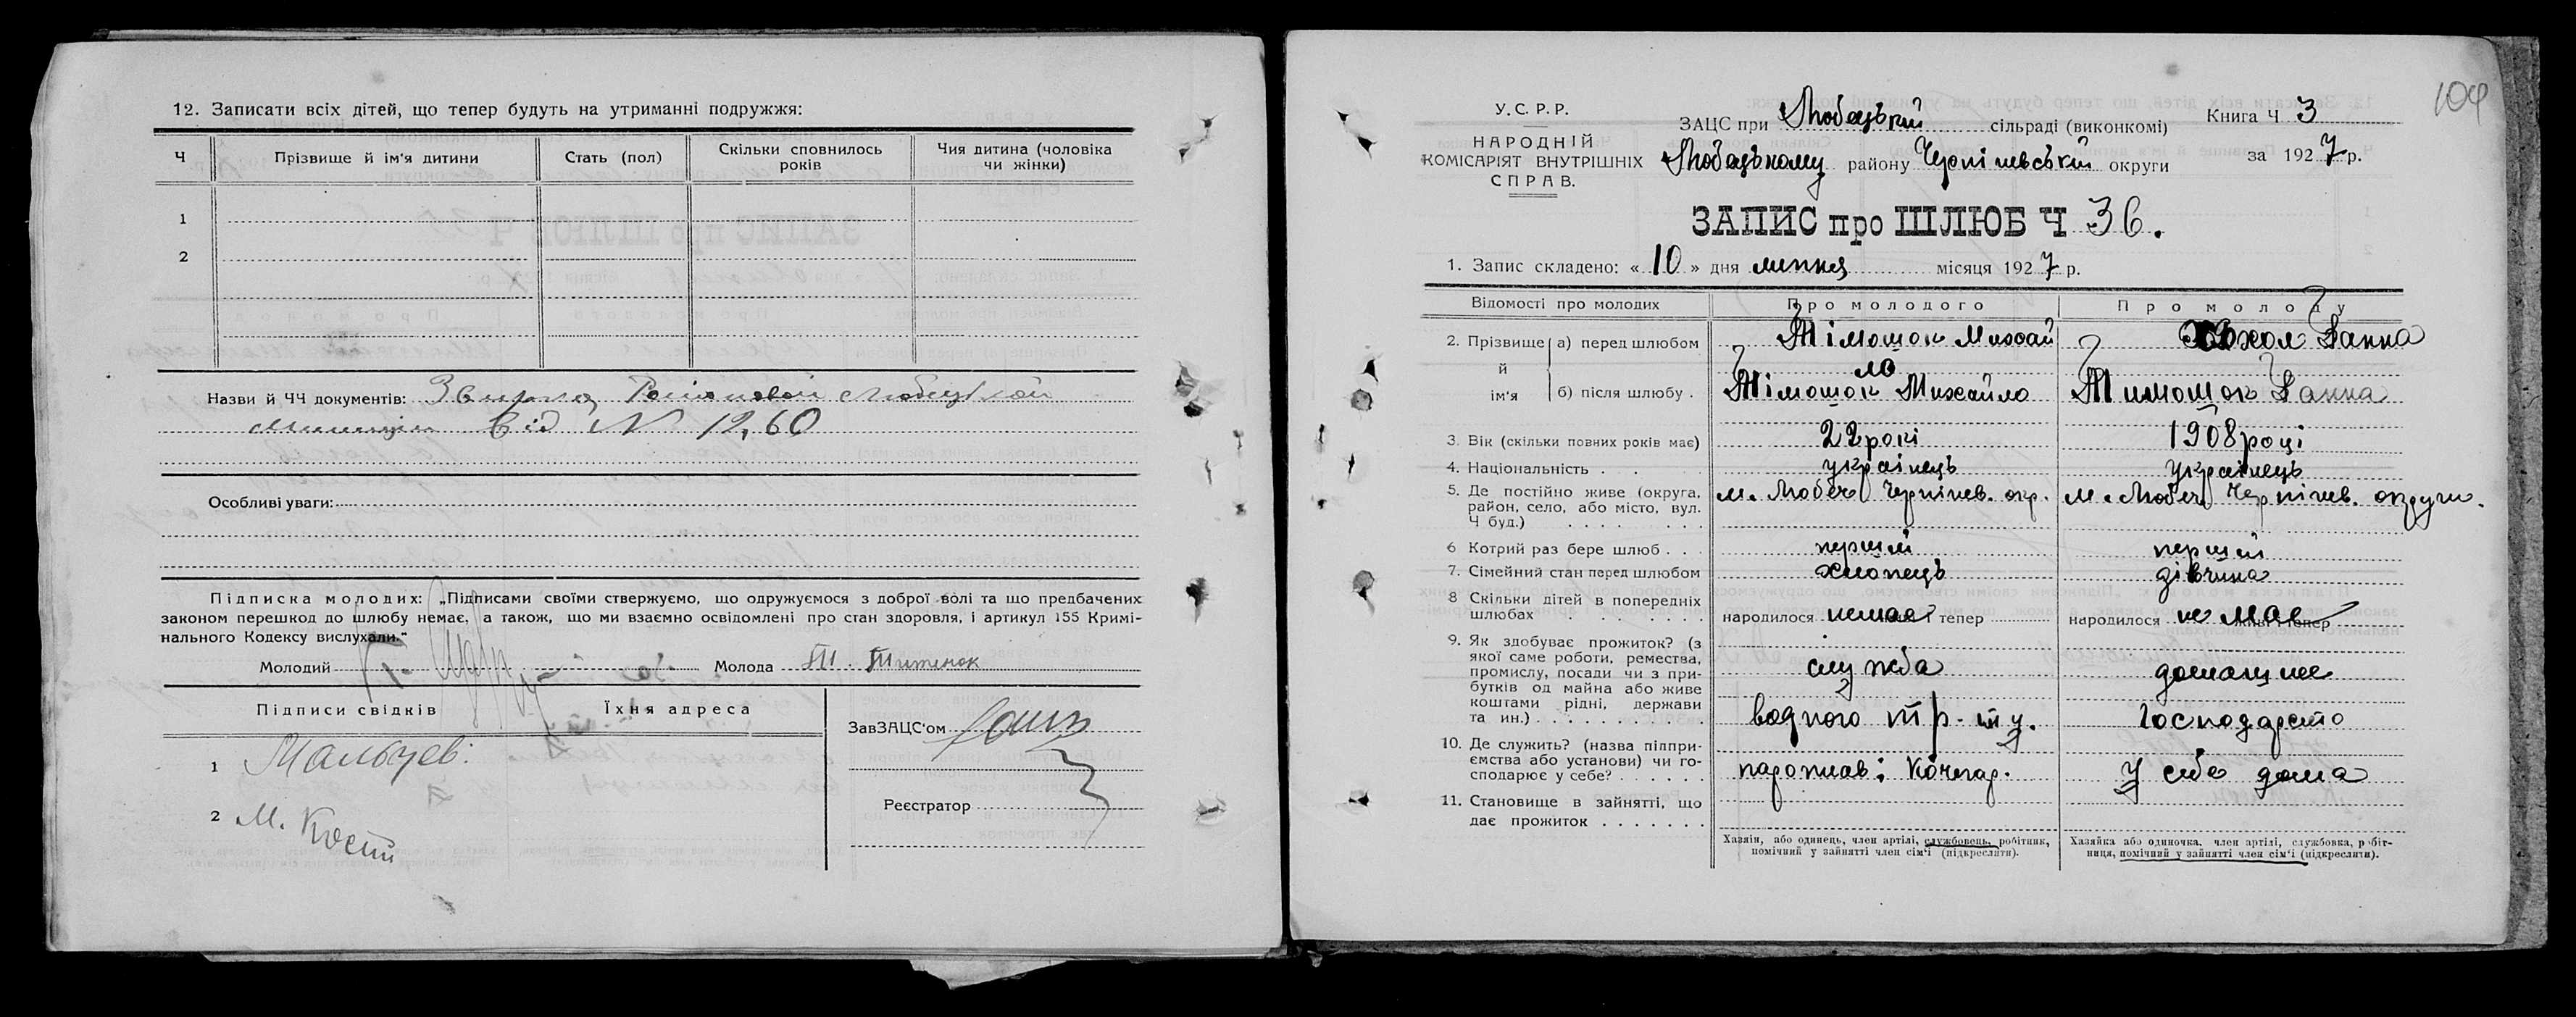 12. Записати всіх дітей, що тепер будуть на утриманні подружжя:
Ч
Прізвище й ім'я дитини
Стать (пол)
Скільки сповнилось
років
Чия дитина (чоловіка
чи жінки)
1
2
Назви й ЧЧ документів:
Від N 12,60
Особливі уваги:
Підписка молодих: „Підписами своїми стверджуємо, що одружуємося з доброї волі та що предбачених
законом перешкод до шлюбу немає, а також, що ми взаємно освідомлені про стан здоровля, і артикул 155 Кримі-
нального Кодексу вислухали.“
Молодий
Молода
Підписи свідків
Їхня адреса
1 Мальцев.
2 М. Кость
ЗавЗАЦС'ом
Реєстратор
104
У.С.Р.Р.
НАРОДНІЙ
КОМІСАРІЯТ ВНУТРІШНІХ
СПРАВ.
ЗАЦС при Любецькій сільраді (виконкомі)
Любецькому району Чернігівській округи
Книга Ч 3
за 1927 р.
ЗАПИС про ШЛЮБ Ч 36.
1. Запис складено: «10» дня липня місяця 1927 р.
Відомості про молодих
Про молодого
Про молоду
2. Прізвище й ім'я
а) перед шлюбом Тімошок Михай
ло
Ганна
б) після шлюбу . Тімошок Михайло
Тимошок Ганна
3. Вік (скільки повних років має) 22 рокі
1908 році
4. Національність . . українець
українець
5. Де постійно живе (округа,
район, село, або місто, вул.
Ч буд.) . . . . м. Любеч Чернігів. окр.
м. Любеч Чернігів. округи.
6 Котрий раз бере шлюб . . . перший
перший
7. Сімейний стан перед шлюбом хлопець
дівчина
8 Скільки дітей в попередніх
шлюбах . . . . . . народилося немає тепер
народилося не має тепер
9. Як здобуває прожиток? (з
якої саме роботи, ремества,
промислу, посади чи з при-
бутків од майна або живе
коштами рідні, держави
та ин.) . . . . . . . . .
служба
водного тр-ту.
домашнє
господарсто
10. Де служить? (назва підпри-
ємства або установи) чи го-
сподарює у себе? . . . . . .
пароплав: Кочегар.
У себе дома
11. Становище в зайнятті, що
дає прожиток . . . . . . .
Хазяїн, або одинець, член артілі, службовець, робітник,
помічний у зайнятті член сім'ї (підкреслити).
Хазяйка або одиночка, член артілі, службовка, робіт-
ниця, помічний у зайнятті член сім'ї (підкреслити).